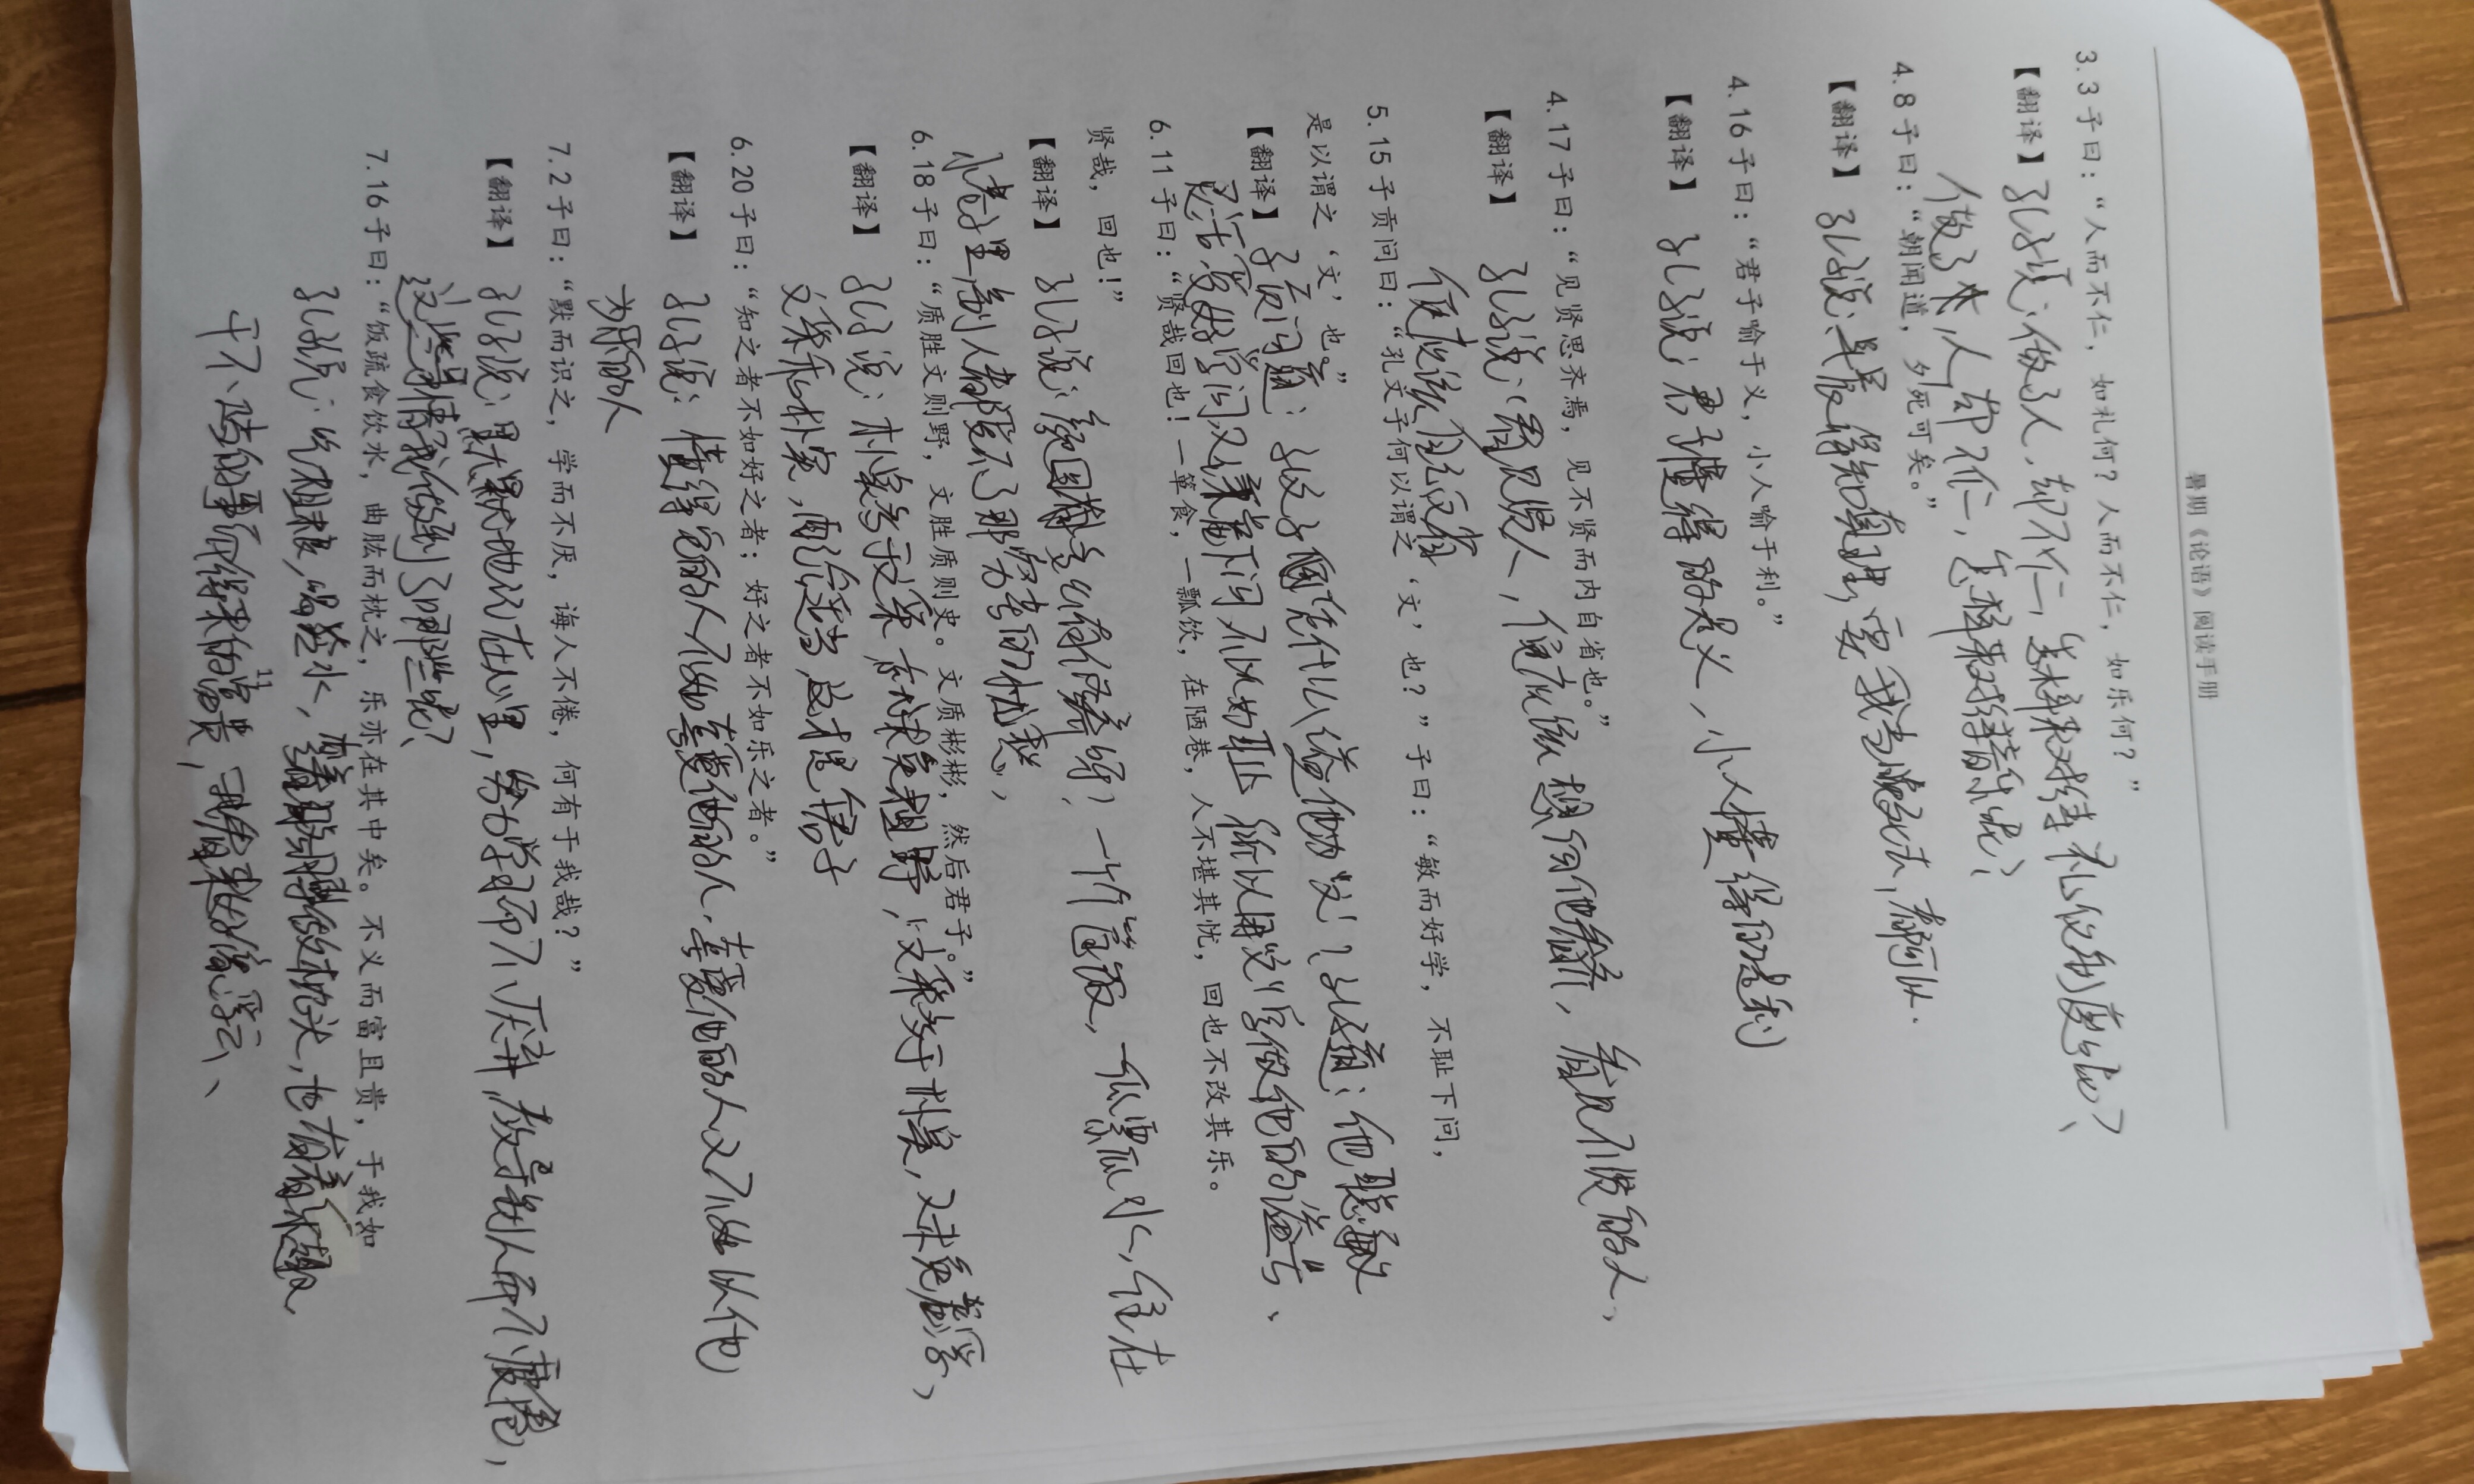 暑期《论语》阅读手册
3.3 子曰：“人而不仁，如礼何？人而不仁，如乐何？”
【翻译】孔子说：做了人，却不仁，怎样来对待礼仪制度呢？
做了人，却不仁，怎样来对待音乐呢？
4.8 子曰：“朝闻道，夕死可矣。”
【翻译】孔子说：早晨得知真理，要我当晚死去，都可以.
4.16 子曰：“君子喻于义，小人喻于利。”
【翻译】孔子说：君子懂得的是义，小人懂得的是利
4.17 子曰：“见贤思齐焉，见不贤而内自省也。”
【翻译】孔子说：看见贤人，便应该想向他看齐，看见不贤的人、
便应该自己反省
5.15 子贡问曰：“孔文子何以谓之‘文’也？”子曰：“敏而好学，不耻下问，
是以谓之‘文’也。”
【翻译】子贡问道：孔文子凭什么谥他为“文”？孔子道：他聪敏
灵活，爱好学问，又谦虚下问，不以为耻，所以用“文”字做他的谥号、
6.11 子曰：“贤哉回也！一箪食，一瓢饮，在陋巷，人不堪其忧，回也不改其乐。
贤哉，回也！”
【翻译】孔子说：颜回多么有修养呀！一竹筐饭，一瓜瓢水，住在
小巷里，别人都受不了那穷苦的忧愁，
6.18 子曰：“质胜文则野，文胜质则史。文质彬彬，然后君子。”
【翻译】孔子说：朴实多于文采，就未免粗野，文采多于朴实，又未免虚浮、
文采和朴实，配合适当，这才是君子
6.20 子曰：“知之者不如好之者；好之者不如乐之者。”
【翻译】孔子说：懂得它的人不如喜爱他的人，喜爱他的人又不如以他
为乐的人
7.2 子曰：“默而识之，学而不厌，诲人不倦，何有于我哉？”
【翻译】孔子说：默默地记在心里，努力学习而不厌弃，教导别人而不疲倦，
这些事情我做到了哪些呢？
7.16 子曰：“饭疏食饮水，曲肱而枕之，乐亦在其中矣。不义而富且贵，于我如
孔子说：吃粗粮，喝冷水，弯着胳膊做枕头，也有着乐趣、
干不正当的事而得来的富贵，我看来好像浮云、
11